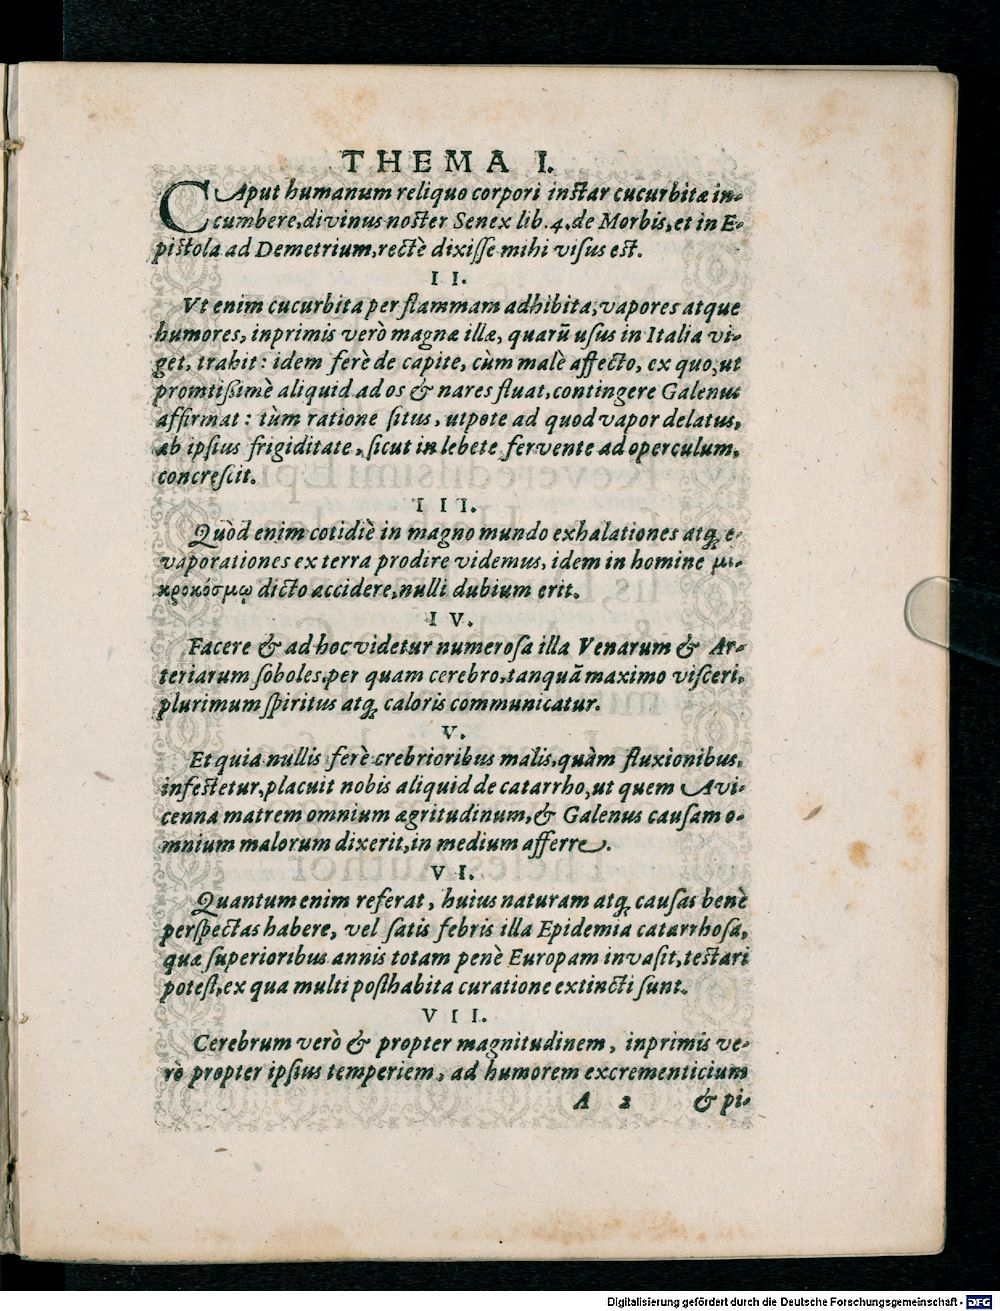 THEMA I.
CAput humanum reliquo corpori instar cucurbitæ in-
cumbere, divinus noster Senex lib. 4. de Morbis, et in E-
pistola ad Demetrium, rectè dixisse mihi visus est.
II.
Vt enim cucurbita per flammam adhibita, vapores atque
humores, inprimis verò magnæ illæ, quarũ usus in Italia vi-
get, trahit: idem ferè de capite, cùm malè affecto, ex quo, ut
promtißimè aliquid ad os & nares fluat, contingere Galenus
affirmat: tùm ratione situs, utpote ad quod vapor delatus,
ab ipsius frigiditate, sicut in lebete fervente ad operculum,
concrescit.
III.
Quòd enim cotidiè in magno mundo exhalationes atq; e-
vaporationes ex terra prodire videmus, idem in homine μι-
κροκόσμῳ dicto accidere, nulli dubium erit.
IV.
Facere & ad hoc videtur numerosa illa Venarum & Ar-
teriarum soboles, per quam cerebro, tanquã maximo visceri,
plurimum spiritus atq; caloris communicatur.
V.
Et quia nullis ferè crebrioribus malis, quàm fluxionibus,
infestetur, placuit nobis aliquid de catarrho, ut quem Avi-
cenna matrem omnium ægritudinum, & Galenus causam o-
mnium malorum dixerit, in medium afferre.
VI.
Quantum enim referat, huius naturam atq; causas benè
perspectas habere, vel satis febris illa Epidemia catarrhosa,
quæ superioribus annis totam penè Europam invasit, testari
potest, ex qua multi posthabita curatione extincti sunt.
VII.
Cerebrum verò & propter magnitudinem, inprimis ve-
rò propter ipsius temperiem, ad humorem excrementicium
A 2 & pi-
Digitalisierung gefördert durch die Deutsche Forschungsgemeinschaft - DFG